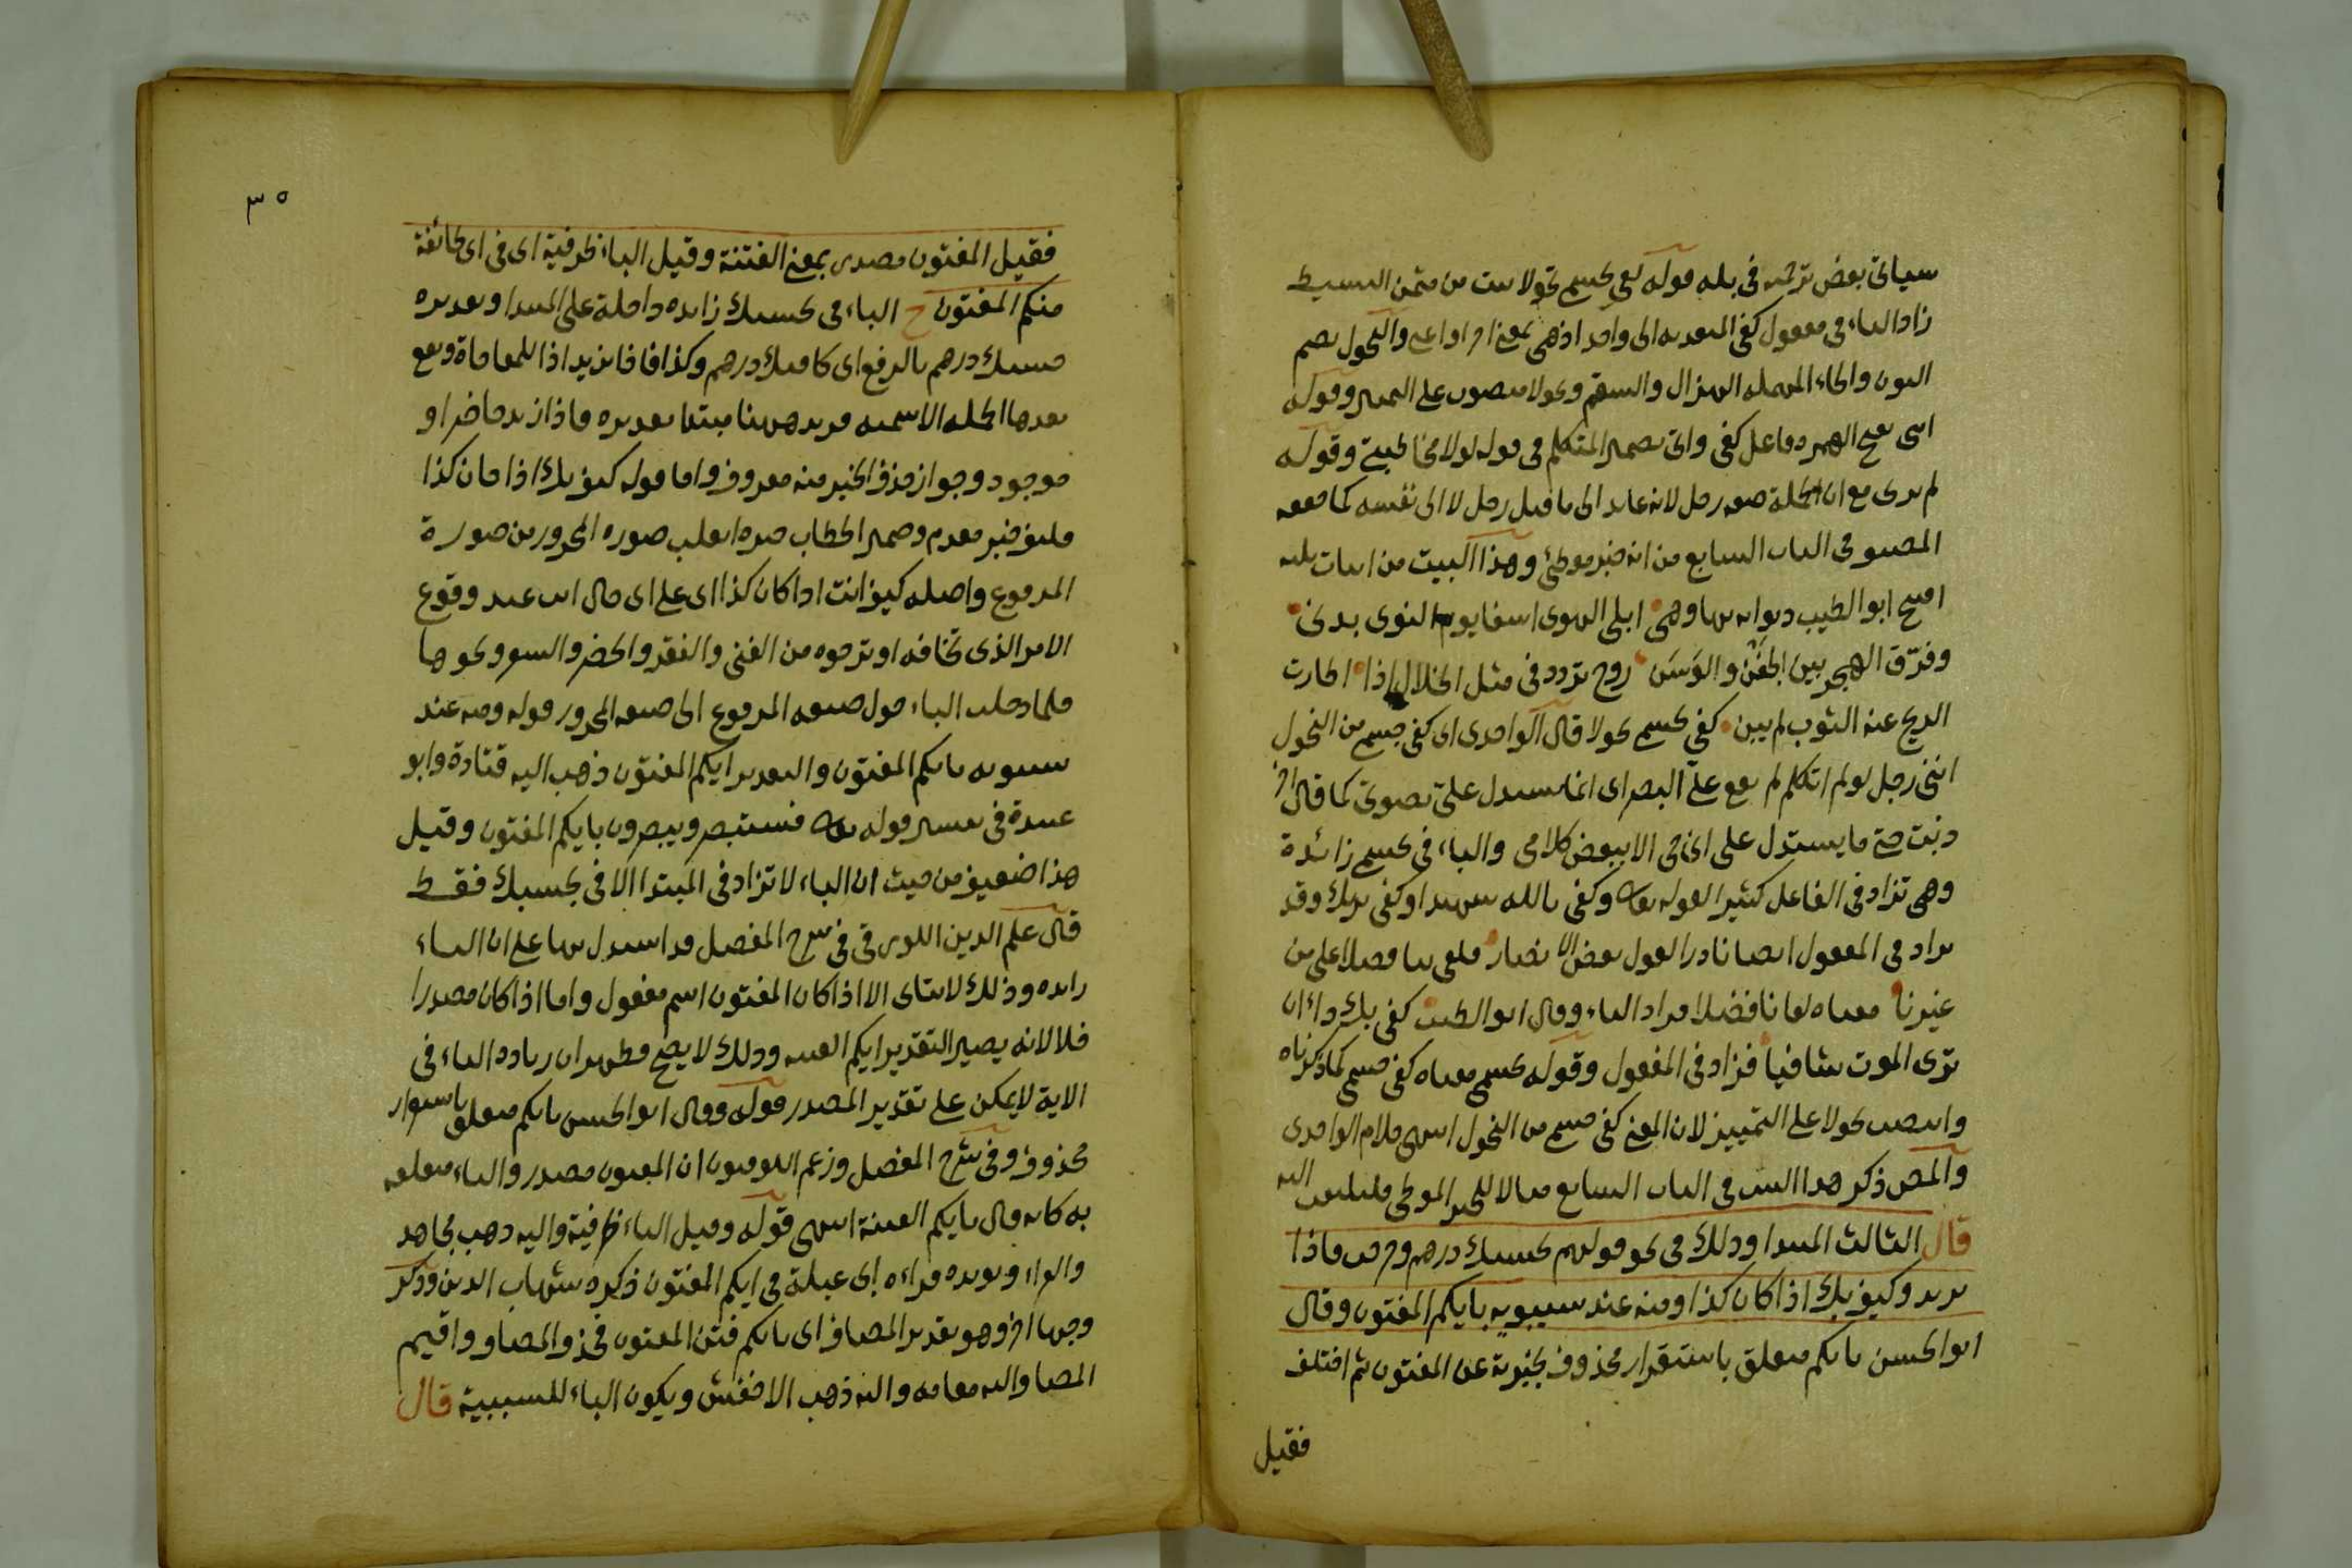 سيأتي بعض ترجمته في بله قوله كفى بجسمي نحولا البيت من مثمن البسيط
زاد الباء في مفعول كفى المتعدية الى واحد اذ هي بمعنى اجزأ واغنى والنحول بضم
النون والحاء المهملة الهزال والسقم ونحولا منصوب على التمييز وقوله
انني بفتح الهمزة فاعل كفى واتى بضمير المتكلم في قوله لولا مخاطبتي وقوله
لم ترني مع ان الجملة صفة رجل لانه عايد الى ما قبل رجل لا الى نفسه كما حققه
المصنف في الباب السابع من انه خبر موطئ وهذا البيت من ابيات ثلاثة
افتتح ابو الطيب ديوانه بها وهي ابلى الهوى اسفا يوم النوى بدني
وفرق الهجر بين الجفن والوسن روح تردد في مثل الخلال اذا اطارت
الريح عنه الثوب لم يبن كفى بجسمي نحولا قال الواحدي اي كفى جسمي من النحول
انني رجل لو لم اتكلم لم يقع علي البصر اي انما يستدل علي بصوتي كما قال اخر
دنبت حتى ما يستدل على اني حي الا ببعض كلامي والباء في بجسمي زائدة
وهي تزاد في الفاعل كثيرا لقوله تعالى وكفى بالله شهيدا وكفى بربك وقد
تزاد في المفعول ايضا نادرا لقول بعض الانصار فكفى بنا فضلا على من
غيرنا معناه كفانا فضلا فزاد الباء وقال ابو الطيب كفى بك داء ان
ترى الموت شافيا فزاد في المفعول وقوله بجسمي معناه كفى جسمي كما ذكرناه
وانتصب نحولا على التمييز لان المعنى كفى جسمي من النحول انتهى كلام الواحدي
والمص ذكر هذا البيت في الباب السابع مثالا للخبر الموطئ فليلتفت اليه
قال الثالث المبتدا وذلك في نحو قولهم بحسبك درهم وخرجت فاذا
بزيد وكيف بك اذا كان كذا ومنه عند سيبويه بايكم المفتون وقال
ابو الحسن بايكم متعلق باستقرار محذوف مخبرية عن المفتون ثم اختلف
فقيل
٣٥
فقيل المفتون مصدر بمعنى الفتنة وقيل الباء ظرفية اي في اي طائفة
منكم المفتون ح الباء في بحسبك زايدة داخلة على المبتدا وتقديره
حسبك درهم بالرفع اي كافيك درهم وكذا فاذا بزيد اذا للمفاجاة وتقع
بعدها الجملة الاسمية فزيد ههنا مبتدا تقديره فاذا زيد حاضر او
موجود وجواز حذف الخبر منه معروف واما قوله كيف بك اذا كان كذا
فكيف خبر مقدم وضمير الخطاب جره انقلب صوره المجرور من صورة
المرفوع واصله كيف انت اذا كان كذا اي على اي حال انت عند وقوع
الامر الذي تخافه او ترجوه من الغنى والفقر والحضر والسفر ونحوها
فلما دخلت الباء حول صيغه المرفوع الى صيغه المجرور قوله ومنه عند
سيبويه بايكم المفتون والتقدير ايكم المفتون ذهب اليه قتادة وابو
عبيدة في تفسير قوله تعالى فستبصر ويبصرون بايكم المفتون وقيل
هذا ضعيف من حيث ان الباء لا تزاد في المبتدا الا في بحسبك فقط
قال علم الدين اللورقي في شرح المفصل قد استدل بها على ان الباء
زايده وذلك لا يتاتى الا اذا كان المفتون اسم مفعول واما اذا كان مصدرا
فلا لانه يصير التقدير ايكم الفتنه وذلك لا يصح فظهر ان زياده الباء في
الاية لا يمكن على تقدير المصدر قوله وقال ابو الحسن بايكم متعلق باستقرار
محذوف وفي شرح المفصل وزعم الكوفيون ان المفتون مصدر والباء متعلقه
به كانه قال بايكم الفتنة انتهى قوله وقيل الباء ظرفية واليه ذهب مجاهد
والفراء ويؤيده قراءه ابن ابي عبلة في ايكم المفتون ذكره شهاب الدين وذكر
وجها اخر وهو تقدير المضاف اي بايكم فتن المفتون فحذف المضاف واقيم
المضاف اليه مقامه واليه ذهب الاخفش ويكون الباء للسببية قال